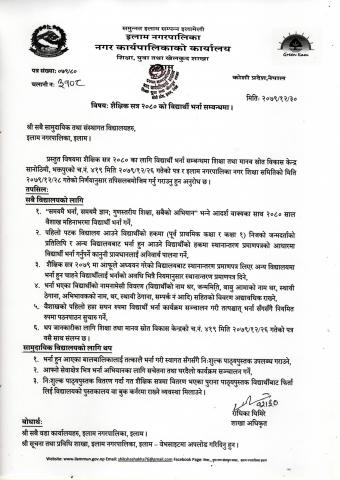 समुन्नत इलाम सम्पन्न इलामेली
इलाम नगरपालिका
नगर कार्यपालिकाको कार्यालय
शिक्षा, युवा तथा खेलकुद शाखा
इलाम
Green Ilam
पत्र संख्याः ०७९/८०
चलानी नं. ३१०८
कोशी प्रदेश, नेपाल
मितिः २०७९/१२/३०
विषयः शैक्षिक सत्र २०८० को विद्यार्थी भर्ना सम्बन्धमा।
श्री सबै सामुदायिक तथा संस्थागत विद्यालयहरु,
इलाम नगरपालिका, इलाम।
प्रस्तुत विषयमा शैक्षिक सत्र २०८० का लागि विद्यार्थी भर्ना सम्बन्धमा शिक्षा तथा मानव स्रोत विकास केन्द्र
सानोठिमी, भक्तपुरको च.नं. ४१९ मिति २०७९/१२/२६ गतेको पत्र र इलाम नगरपालिका नगर शिक्षा समितिको मिति
२०७९/१२/२८ गतेको निर्णयानुसार तपसिलबमोजिम गर्नु गराउनु हुन अनुरोध छ।
तपसिलः
सबै विद्यालयको लागि
१. "समयमै भर्ना, समयमै ज्ञान; गुणस्तरीय शिक्षा, सबैको अभियान" भन्ने आदर्श वाक्यका साथ २०८० साल
वैशाख महिनाभरमा विद्यार्थी भर्ना गर्ने।
२. पहिलो पटक विद्यालय आउने विद्यार्थीको हकमा (पूर्व प्राथमिक कक्षा र कक्षा १) निजको जन्मदर्ताको
प्रतिलिपि र अन्य विद्यालयबाट भर्ना हुन आउने विद्यार्थीको हकमा स्थानान्तरण प्रमाणपत्रको आधारमा
विद्यार्थी भर्ना गर्नुपर्ने कानूनी प्रावधानलाई अनिवार्य पालना गर्ने।
३. शैक्षिक सत्र २०७९ मा आफूले अध्ययन गरेको विद्यालयबाट स्थानान्तरण प्रमाणपत्र लिएर अन्य विद्यालयमा
भर्ना हुन चाहने विद्यार्थीलाई भर्नाको अवधि भित्रै नियमानुसार स्थानान्तरण प्रमाणपत्र दिने।
४. भर्ना भएका विद्यार्थीको नामनामेसी विवरण (विद्यार्थीको नाम थर, जन्ममिति, बाबु आमाको नाम थर, स्थायी
ठेगाना, अभिभावकको नाम, थर, स्थायी ठेगाना, सम्पर्क नं आदि) सहितको विवरण अद्यावधिक राख्ने।
५. वैशाखको पहिलो हप्ता सघन रुपमा विद्यार्थी भर्ना कार्यक्रम सञ्चालन गरी तत्पश्चात् भर्ना सँगसँगै नियमित
रुपमा पठनपाठन सुचारु गर्ने।
६. थप जानकारीका लागि शिक्षा तथा मानव स्रोत विकास केन्द्रको च.नं. ४१९ मिति २०७९/१२/२६ गतेको पत्र
यसै साथ संलग्न छ।
सामुदायिक विद्यालयको लागि थप
१. भर्ना हुन आएका बालबालिकालाई तत्कालै भर्ना गरी स्वागत सँगसँगै निःशुल्क पाठ्यपुस्तक उपलब्ध गराउने,
२. आफ्नो सेवाक्षेत्र भित्र भर्ना अभियानका लागि सचेतना तथा घरदैलो कार्यक्रम सञ्चालन गर्ने,
३. निःशुल्क पाठ्यपुस्तक वितरण गर्दा गत शैक्षिक सत्रमा वितरण भएका पुराना पाठ्यपुस्तक विद्यार्थीबाट फिर्ता
लिई विद्यालयको पुस्तकालय वा बुक कर्नरमा राख्ने व्यवस्था मिलाउने।
राधिका घिमिरे
शाखा अधिकृत
बोधार्थः
श्री सबै वडा कार्यालयहरु, इलाम नगरपालिका, इलाम।
श्री सूचना तथा प्रविधि शाखा, इलाम नगरपालिका, इलाम – वेभसाइटमा अपलोड गरिदिनु हुन।